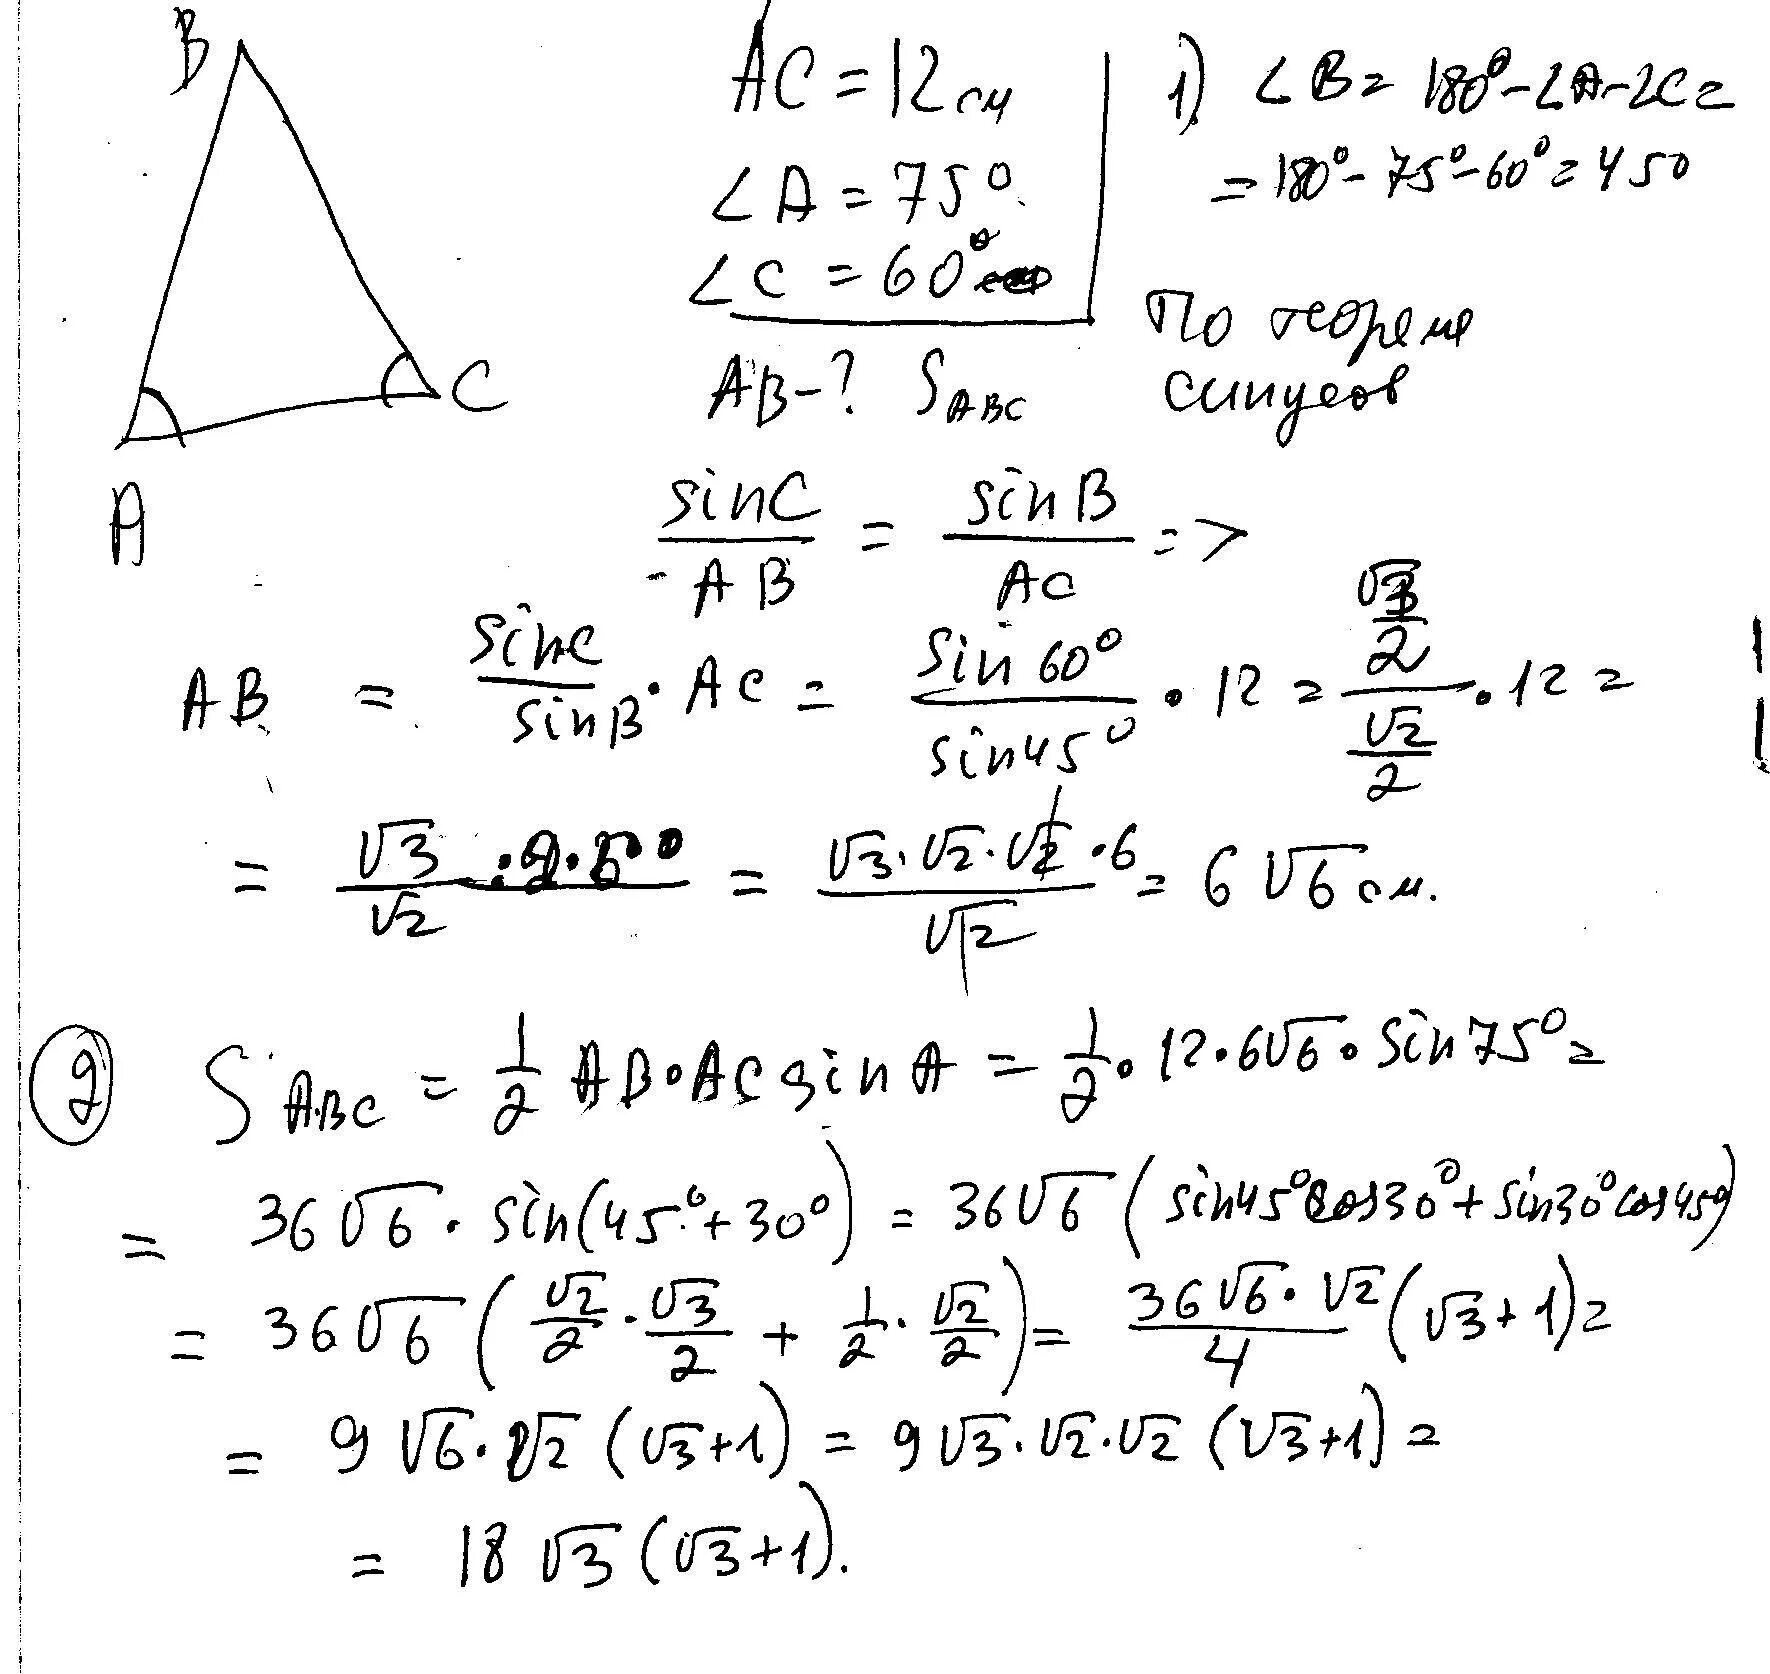 B
C
A
AC = 12 см
∠A = 75°
∠C = 60°
AB - ? S_ABC
1) ∠B = 180° - ∠A - ∠C =
= 180° - 75° - 60° = 45°
По теореме
синусов
sinC/AB = sinB/AC =>
AB = sinC/sinB · AC = sin60°/sin45° · 12 = (√3/2)/(√2/2) · 12 =
= √3/√2 · 2 · 6 = (√3 · √2 · √2 · 6)/√2 = 6√6 см.
2 S_ABC = 1/2 AB · AC sinA = 1/2 · 12 · 6√6 · sin75° =
= 36√6 · sin(45° + 30°) = 36√6 (sin45°cos30° + sin30°cos45°)
= 36√6 (√2/2 · √3/2 + 1/2 · √2/2) = (36√6 · √2)/4 (√3 + 1) =
= 9√6 · √2 (√3 + 1) = 9√3 · √2 · √2 (√3 + 1) =
= 18√3 (√3 + 1).